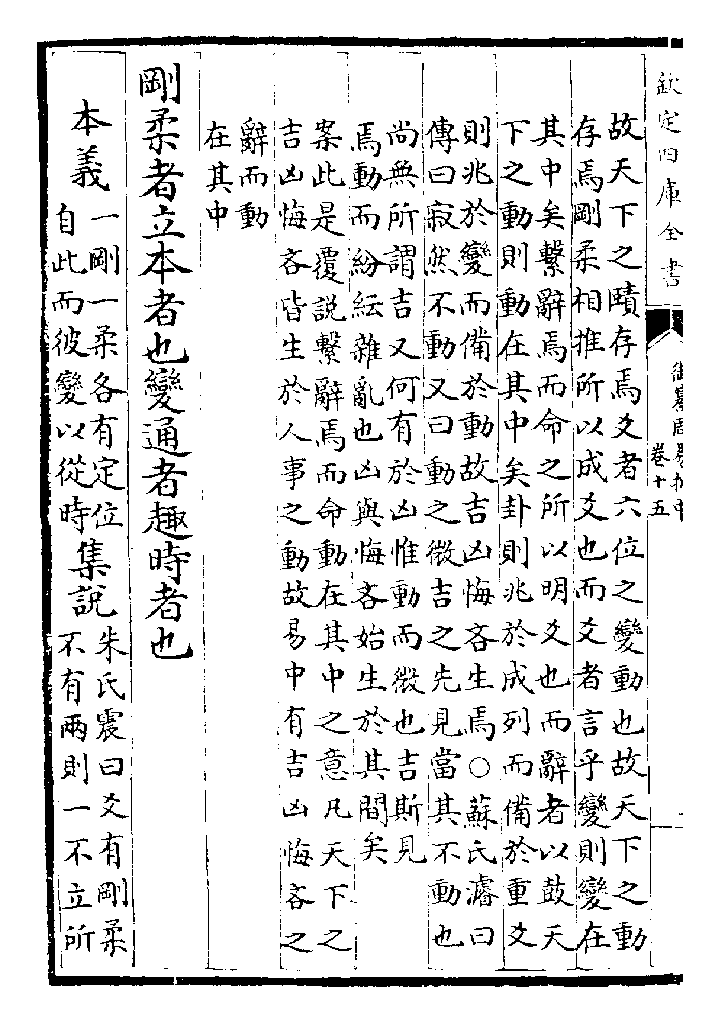 欽定四庫全書
御纂周易折中
卷十五
故天下之賾存焉爻者六位之變動也故天下之動
存焉剛柔相推所以成爻也而爻者言乎變則變在
其中矣繫辭焉而命之所以明爻也而辭者以鼓天
下之動則動在其中矣卦則兆於成列而備於重爻
則兆於變而備於動故吉凶悔吝生焉○蘇氏濬曰
傳曰寂然不動又曰動之微吉之先見當其不動也
尚無所謂吉又何有於凶惟動而微也吉斯見
焉動而紛紜雜亂也凶與悔吝始生於其間矣
案此是覆說繫辭焉而命動在其中之意凡天下之
吉凶悔吝皆生於人事之動故易中有吉凶悔吝之
辭而動
在其中
剛柔者立本者也變通者趣時者也
本義一剛一柔各有定位
自此而彼變以從時集說朱氏震曰爻有剛柔
不有兩則一不立所